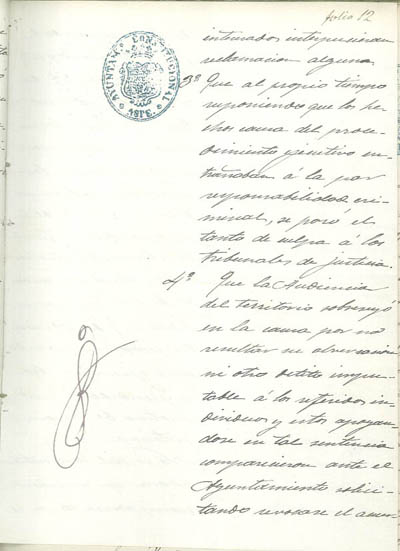 folio 12
AYUNTAMº CONSTITUCIONAL
ASPE.
interesados interpusieran
reclamacion alguna.
3º Que al propio tiempo
suponiendo que los he-
chos causa del proce-
dimiento ejecutivo en-
trañaban á la par
responsabilidad cri-
minal, se pasó el
tanto de culpa á los
tribunales de justicia.
4º Que la Audiencia
del territorio sobreseyó
en la causa por no
resultar ni
ni otro delito impu-
table á los referidos in-
dividuos y estos apoyan-
dose en tal sentencia
comparecieron ante el
Ayuntamiento solici-
tando revocase el acuer-